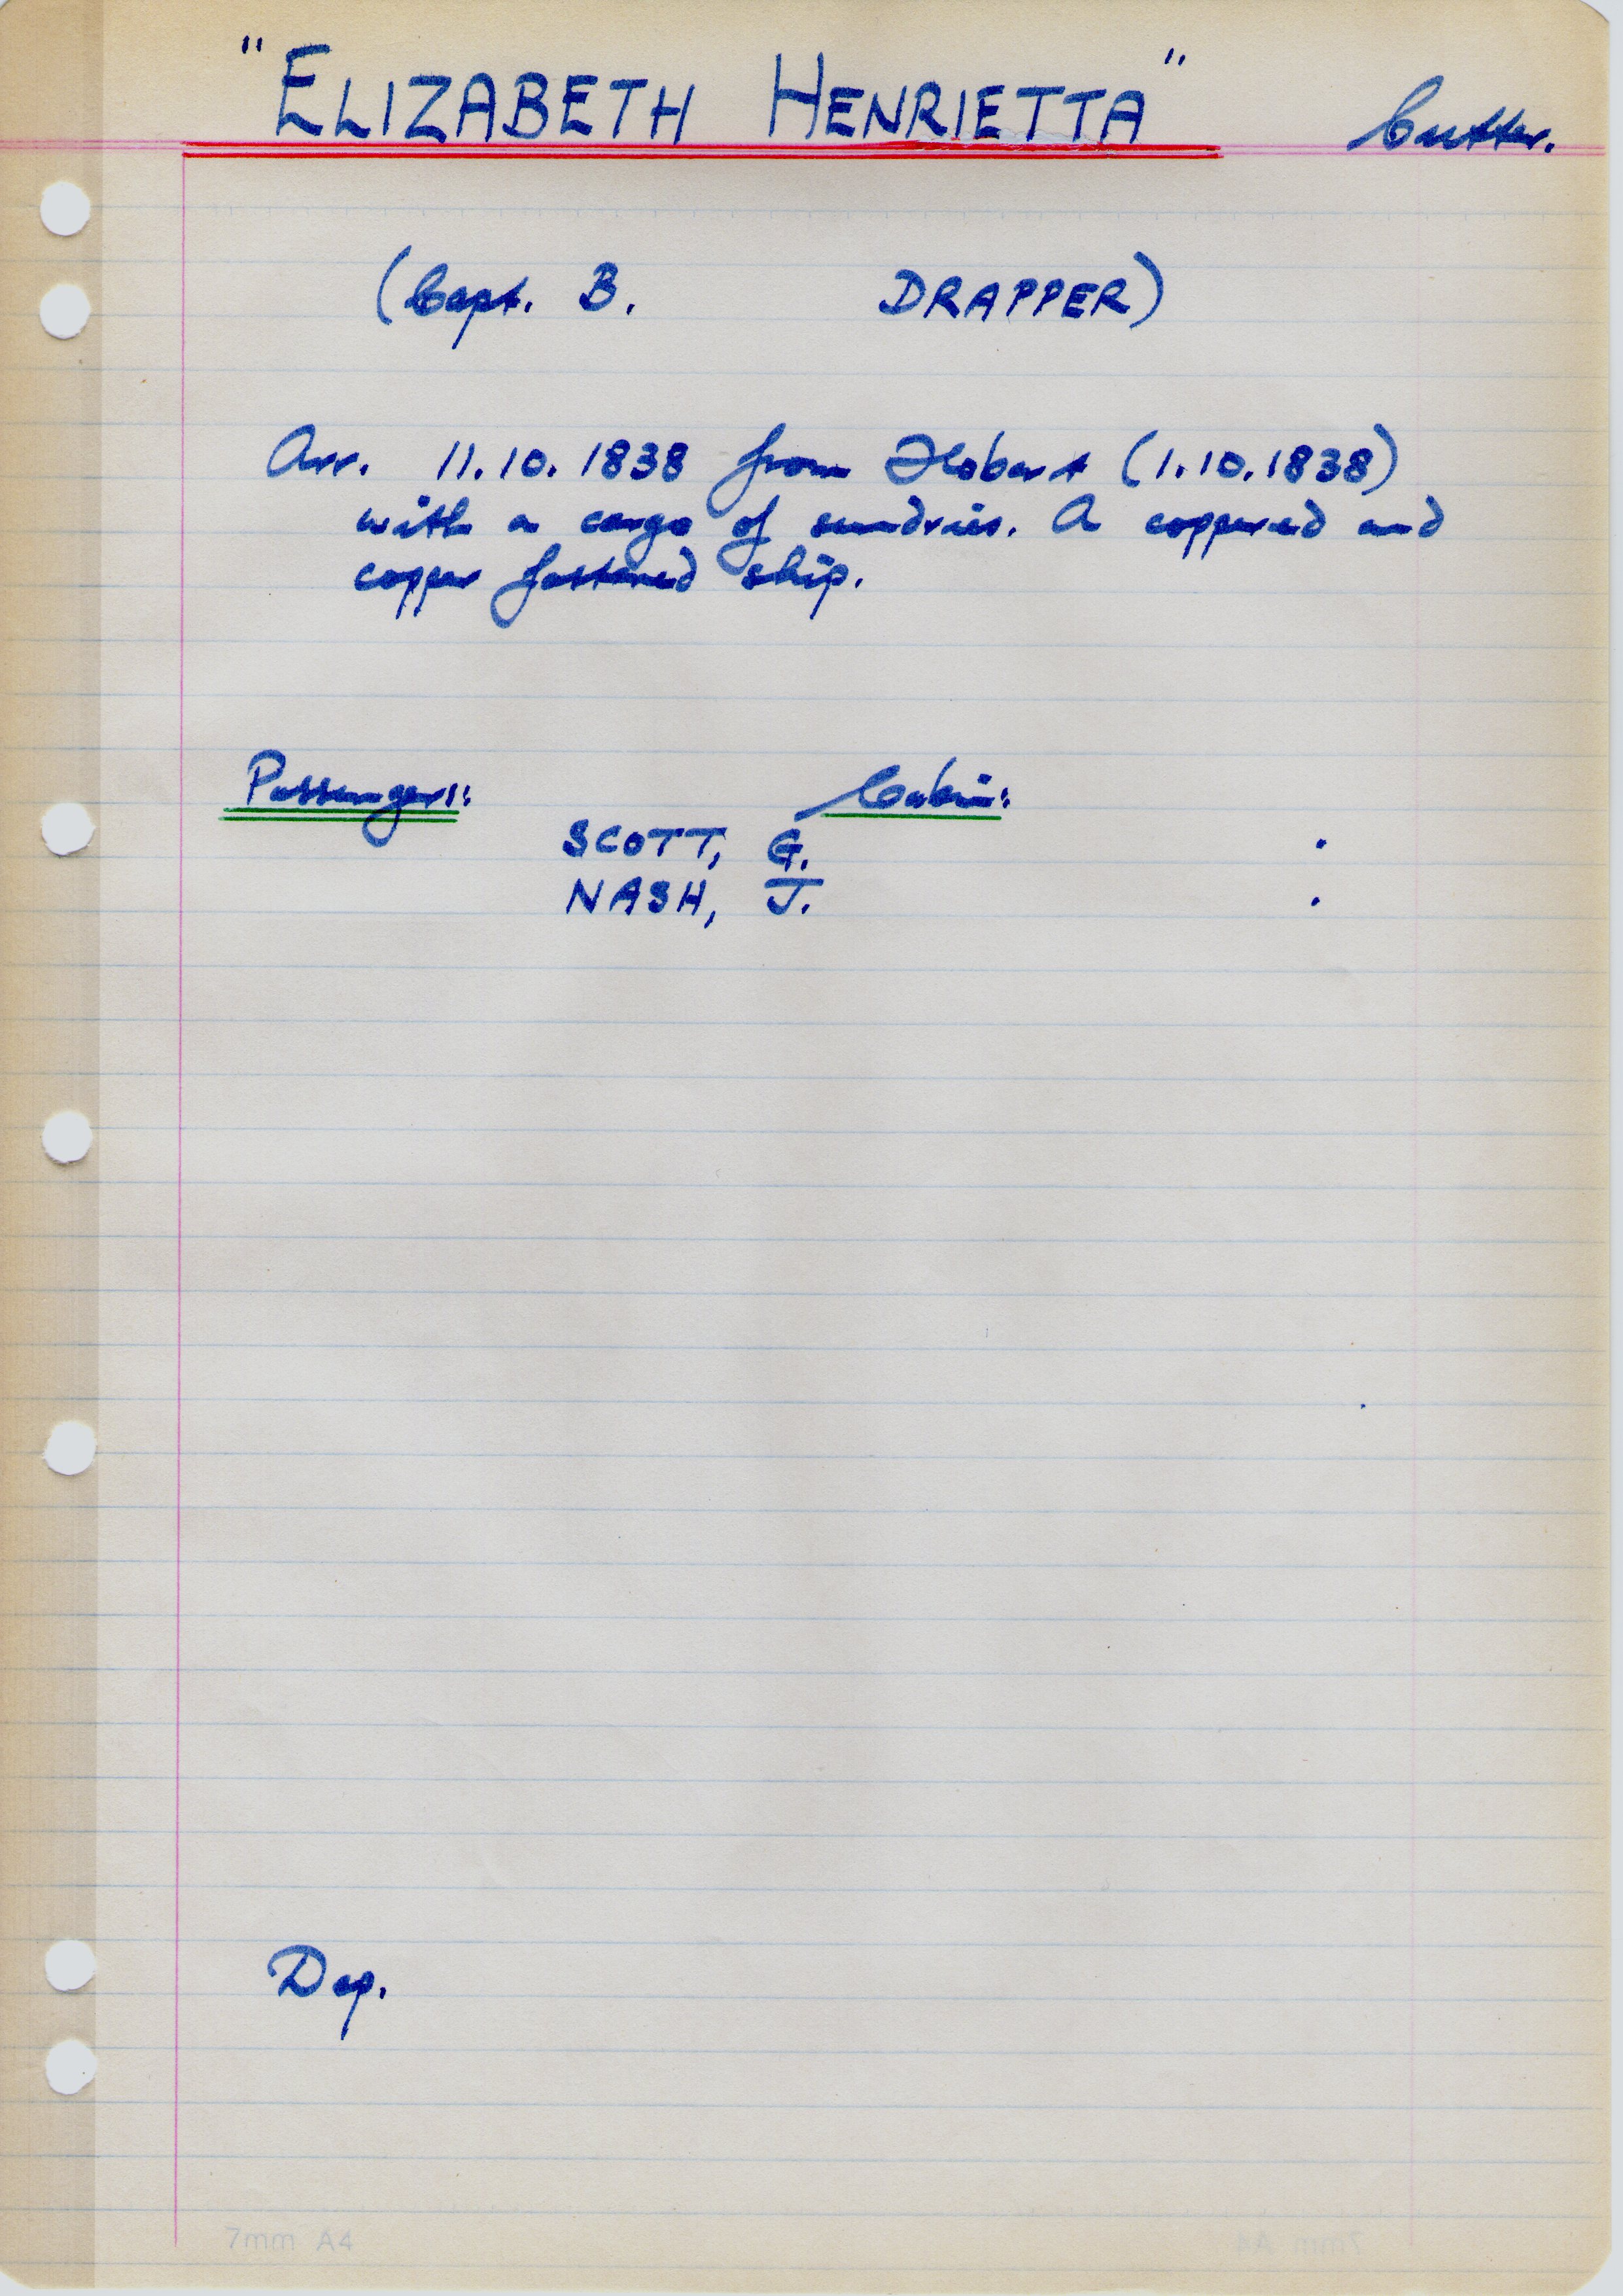 "ELIZABETH HENRIETTA" Cutter.
(Capt. B. DRAPPER)
Arr. 11.10.1838 from Hobart (1.10.1838)
with a cargo of sundries. A coppered and
copper fastened ship.
Passengers: Cabin:
SCOTT, G. .
NASH, J. .
Dep.
7mm A4